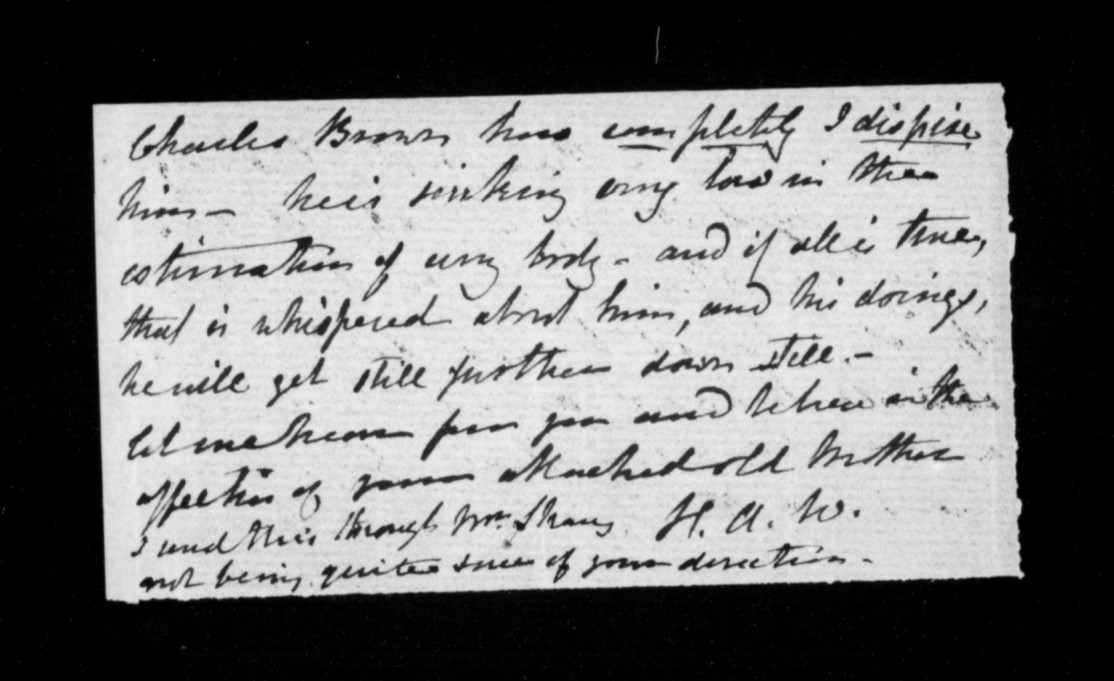 Charles Brown how completely I dispise
him — he is sinking very low in the
estimation of every body – and if all is true,
that is whispered about him, and his doings,
he will get still further down still. –
let me hear from you and believe in the
affection of your attached old Mother
H. A. W.
I send this through Mr.
not being quite sure of your direction –